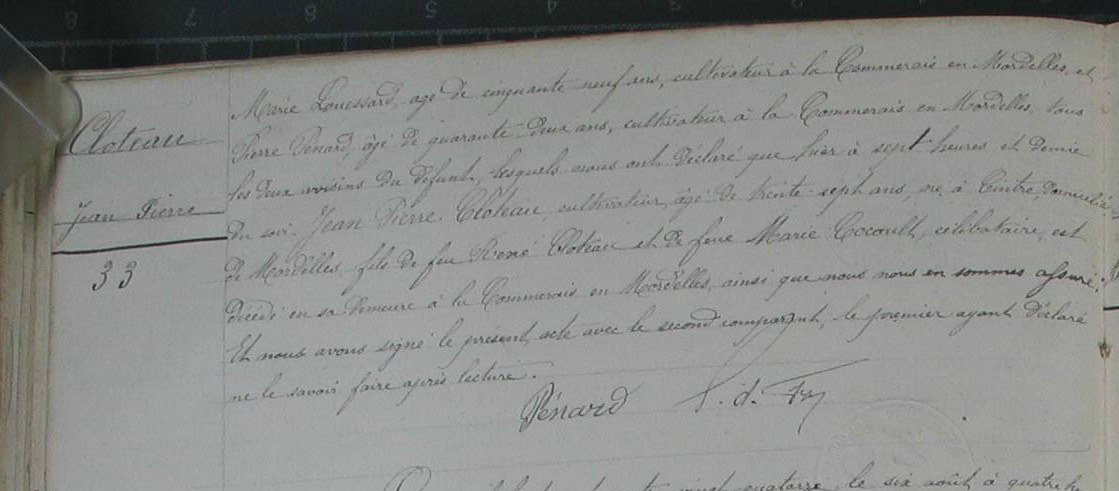 Cloteau
Jean Pierre
33
Marie Louessard, age de cinquante neuf ans, cultivateur à la Commerais en Mordelles, et
Pierre Pénard, âgé de quarante-deux ans, cultivateur à la Commerais en Mordelles, tous
les deux voisins du défunt, lesquels nous ont déclaré que hier à sept heures et demie
du soir, Jean Pierre Cloteau, cultivateur, âgé de trente-sept ans, né à Cintré, domicilié
de Mordelles, fils de feu René Cloteau et de feue Marie Cocoult, célibataire, est
décédé en sa demeure à la Commerais en Mordelles, ainsi que nous nous en sommes assuré.
Et nous avons signé le présent acte avec le second comparant, le premier ayant déclaré
ne le savoir faire après lecture.
Pénard
quatorze, le six août à quatre h